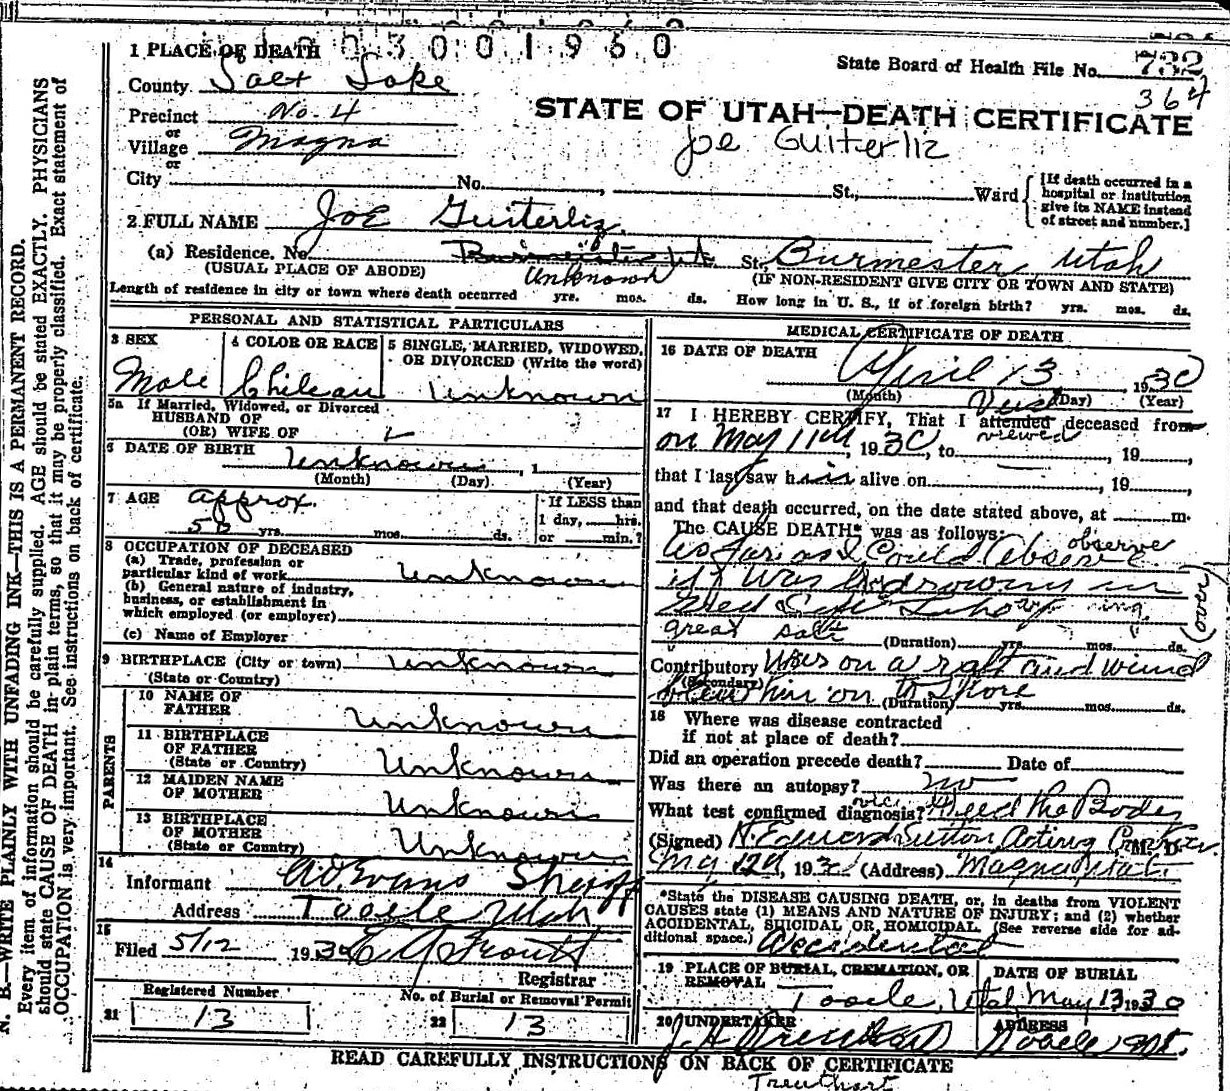 003001960
1 PLACE OF DEATH
County Salt Lake
State Board of Health File No. 732
364
Precinct No. 4
or
Village Magna
or
STATE OF UTAH—DEATH CERTIFICATE
Joe Guiterliz
City No. , St., Ward
[If death occurred in a
hospital or institution
give its NAME instead
of street and number.]
2 FULL NAME Joe Guiterliz
(a) Residence. No. St. Burmester, Utah
(USUAL PLACE OF ABODE) (IF NON-RESIDENT GIVE CITY OR TOWN AND STATE)
Unknown
Length of residence in city or town where death occurred yrs. mos. ds. How long in U. S., if of foreign birth? yrs. mos. ds.
PERSONAL AND STATISTICAL PARTICULARS
3 SEX
Male
4 COLOR OR RACE
Chilean
5 SINGLE, MARRIED, WIDOWED,
OR DIVORCED (Write the word)
Unknown
5a If Married, Widowed, or Divorced
HUSBAND OF
(OR) WIFE OF
6 DATE OF BIRTH Unknown , 1
(Month) (Day) (Year)
7 AGE approx.
yrs. mos. ds.
If LESS than
1 day, hrs.
or min.?
8 OCCUPATION OF DECEASED
(a) Trade, profession or
particular kind of work Unknown
(b) General nature of industry,
business, or establishment in
which employed (or employer)
(c) Name of Employer
9 BIRTHPLACE (City or town) Unknown
(State or Country)
PARENTS
10 NAME OF
FATHER Unknown
11 BIRTHPLACE
OF FATHER
(State or Country) Unknown
12 MAIDEN NAME
OF MOTHER Unknown
13 BIRTHPLACE
OF MOTHER
(State or Country) Unknown
14
Informant Evans Sheriff
Address Tooele Utah
15
Filed 5/12 1930
Registrar
Registered Number
21 13
No. of Burial or Removal Permit
22 13
MEDICAL CERTIFICATE OF DEATH
16 DATE OF DEATH
April 13 , 1930
(Month) (Day) (Year)
17 I HEREBY CERTIFY, That I attended deceased from
viewed
on May 11th, 1930, to , 19 ,
that I last saw him alive on , 19 ,
and that death occurred, on the date stated above, at m.
The CAUSE DEATH* was as follows:
observe
As far as I Could
it was drowning in
great salt
(over)
(Duration) yrs. mos. ds.
Contributory Was on a raft and wind
(Secondary)
blew him on to Shore
(Duration) yrs. mos. ds.
18 Where was disease contracted
if not at place of death?
Did an operation precede death? Date of
Was there an autopsy? no
What test confirmed diagnosis? the Body
(Signed) H. Edward Sutton Acting M. D.
12th, 193 (Address) Magna Utah
*State the DISEASE CAUSING DEATH, or, in deaths from VIOLENT
CAUSES state (1) MEANS AND NATURE OF INJURY; and (2) whether
ACCIDENTAL, SUICIDAL OR HOMICIDAL. (See reverse side for ad-
ditional space.) Accidental
19 PLACE OF BURIAL, CREMATION, OR
REMOVAL
Tooele, Utah
DATE OF BURIAL
May 13 1930
20 UNDERTAKER
J. H.
ADDRESS
Tooele
READ CAREFULLY INSTRUCTIONS ON BACK OF CERTIFICATE
N. B.—WRITE PLAINLY WITH UNFADING INK—THIS IS A PERMANENT RECORD.
Every item of information should be carefully supplied. AGE should be stated EXACTLY. PHYSICIANS
should state CAUSE OF DEATH in plain terms, so that it may be properly classified. Exact statement of
OCCUPATION is very important. See instructions on back of certificate.